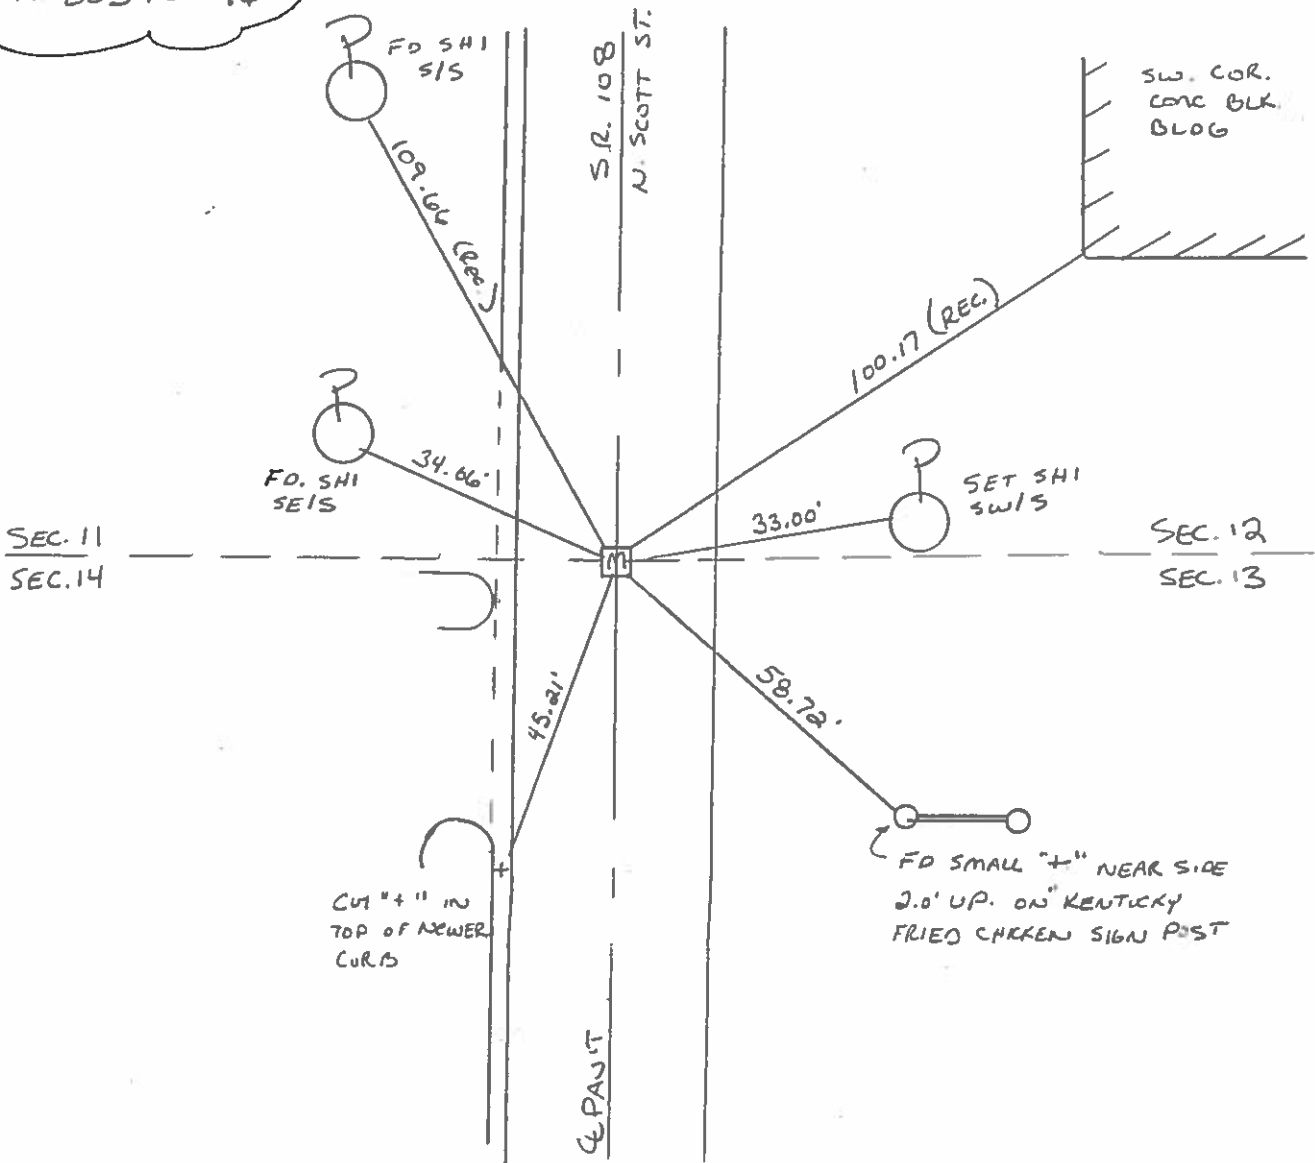 FD SHI
S/S
109.66 (REC.)
S.R. 108
N. SCOTT ST.
SW. COR.
CONC BLK
BLDG
100.17 (REC.)
P
P
P
34.66'
FD. SHI
SE/S
33.00'
SET SHI
SW/S
SEC. 11
SEC. 14
SEC. 12
SEC. 13
M
45.21'
58.72'
CUT "+" IN
TOP OF NEWER
CURB
FD SMALL "+" NEAR SIDE
2.0' UP. ON KENTUCKY
FRIED CHICKEN SIGN POST
℄ PAV'T